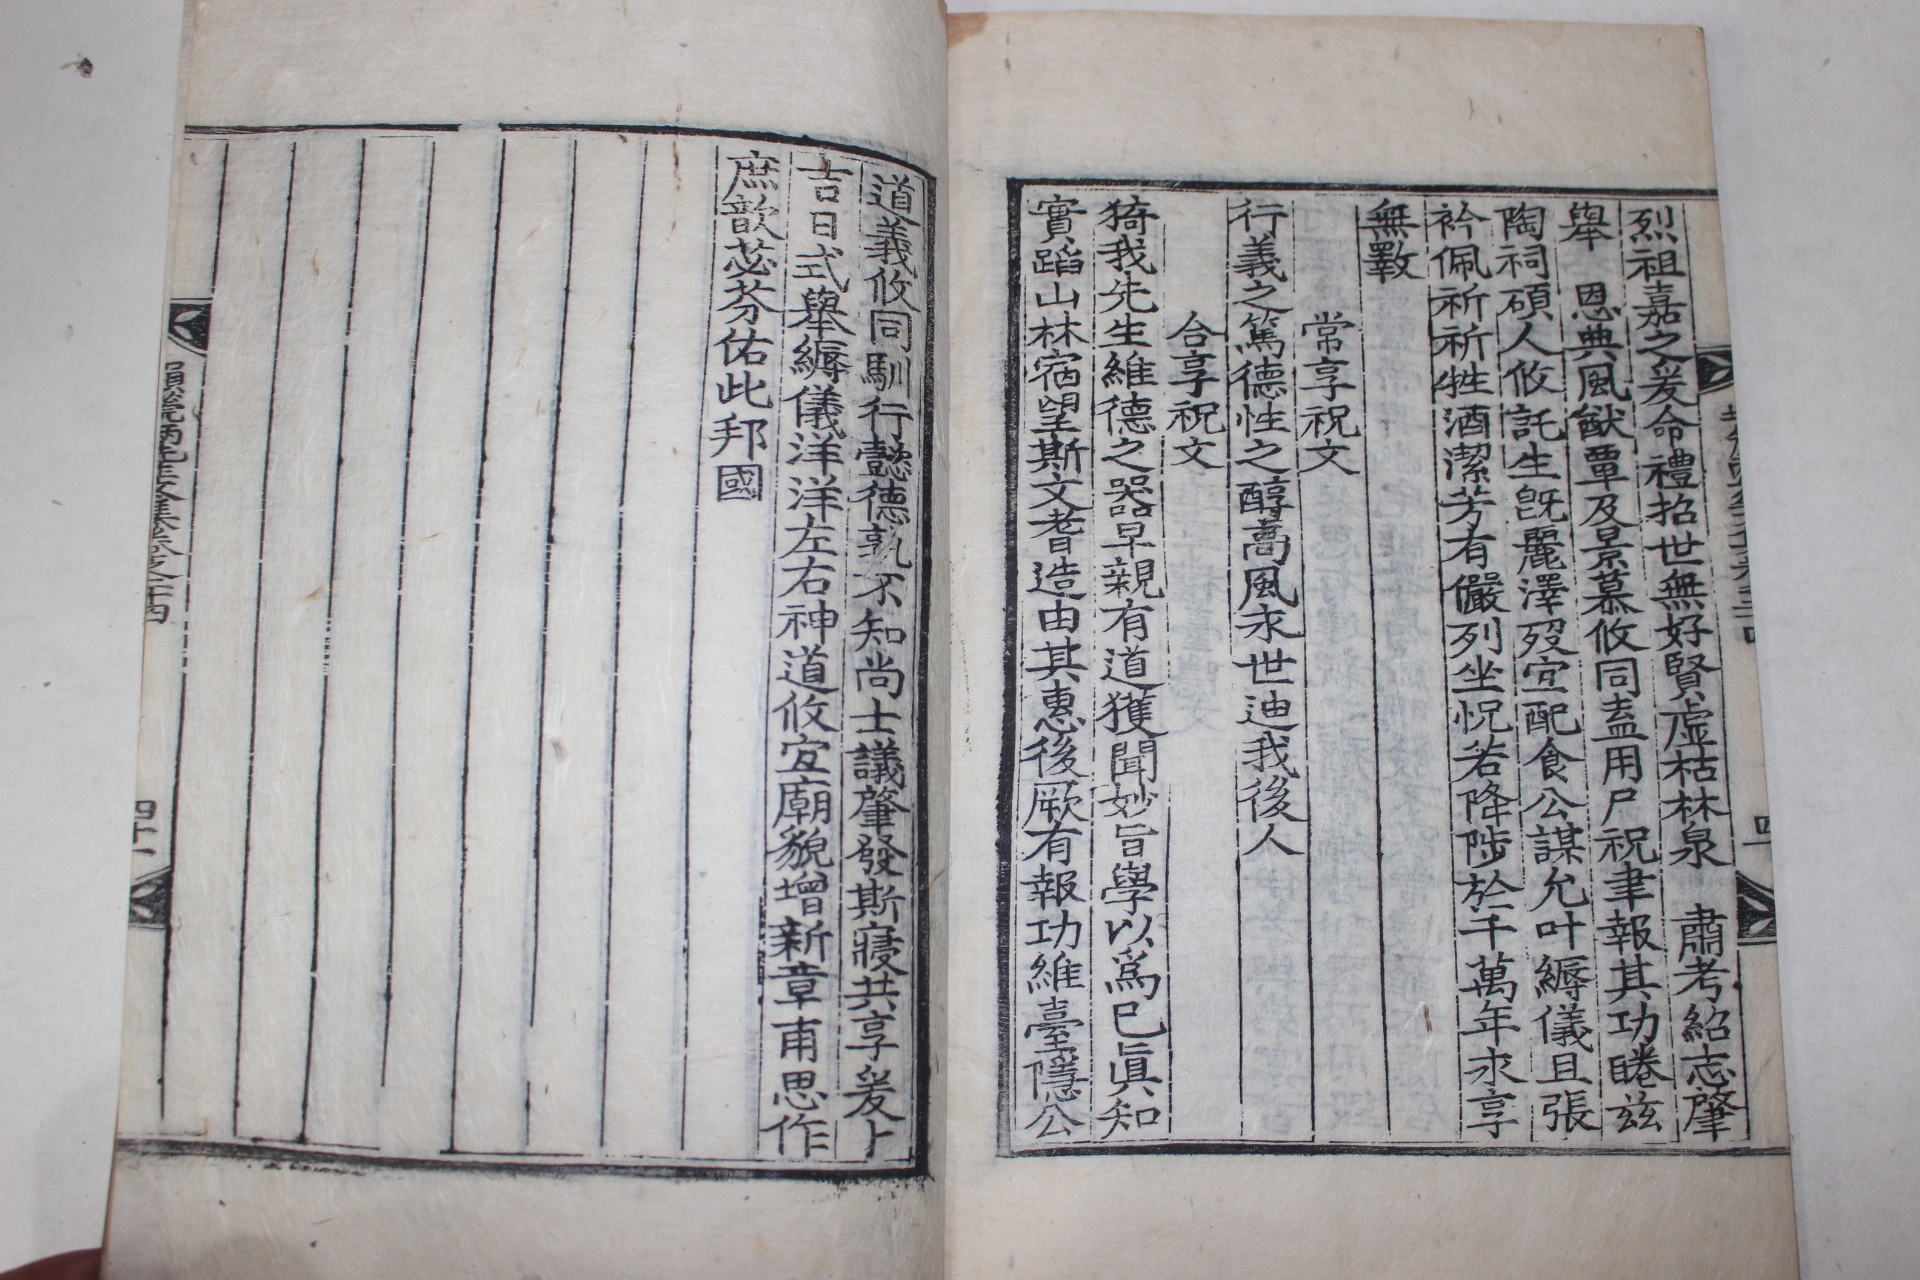 烈祖嘉之爰命禮招世無好賢虛枯林泉 肅考紹志肇
擧 恩典風猷覃及景慕攸同盍用尸祝聿報其功睠玆
陶祠碩人攸託生旣麗澤歿宜配食公謀允叶縟儀且張
衿佩祈祈牲酒潔芳有儼列坐怳若降陟於千萬年永享
無斁
常享祝文
行義之篤德性之醇高風永世迪我後人
合享祝文
猗我先生維德之器早親有道獲聞妙旨學以爲己眞知
實蹈山林宿望斯文耆造由其惠後厥有報功維臺隱公
道義攸同馴行懿德孰不知尚士議肇發斯寢共享爰卜
吉日式擧縟儀洋洋左右神道攸宜廟貌增新章甫思作
庶歆苾芬佑此邦國
先生文集卷之十四
四十一